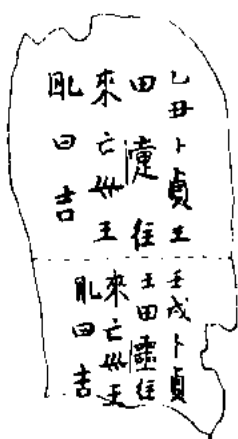 乙丑卜貞王
田往
來亡𡿧王
曰吉
壬戌卜貞
王田往
來亡𡿧王
曰吉